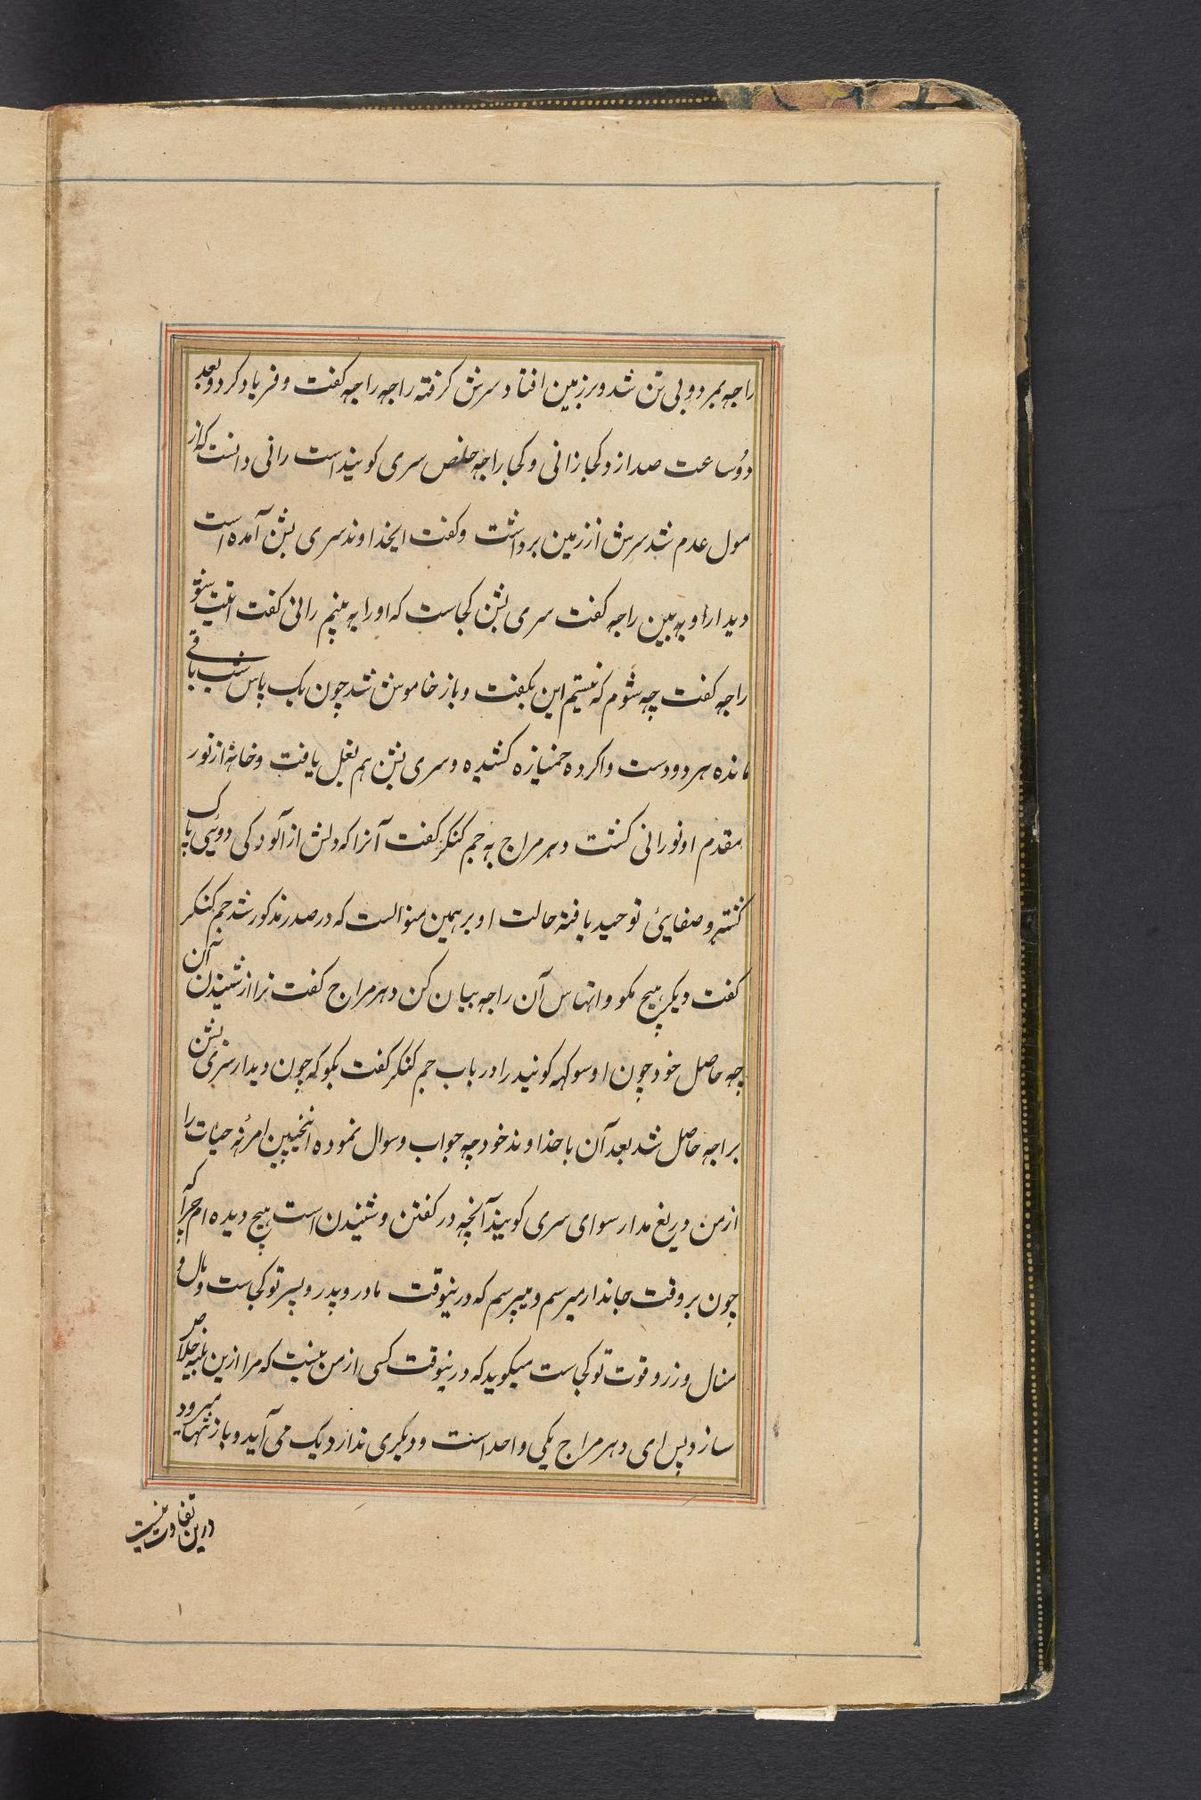 راجه بمرد و بی تن شد و بر زمین افتاد سرش گرفته راجه راجه گفت و فریاد کرد و بعد
دو ساعت صدا زد کجا رانی و کجا راجه خلص سری کوبیند است رانی دانست که از
هول عدم شد سرش از زمین برداشت و گفت ایخداوند سری بشن آمده است
دیدار او به بین راجه گفت سری بشن کجاست که او را به بینم رانی گفت شو
راجه گفت چه شوم که نیستم این بگفت و باز خاموش شد چون یک پاس شب باقی
مانده هر دو دست وا کرده خمیازه کشیده و سری بشن هم بغل یافت و خانه از نور
مقدم او نورانی گشت دهرمراج به جم کنکر گفت آنرا که دلش از آلودگی دوئی پاک
گشته و صفایئ توحید یافته حالت او بر همین منوالست که در صدر مذکور شد جم کنکر
گفت دیگر هیچ مگو و التماس آن راجه بیان کن دهرمراج گفت ترا از شنیدن آن
چه حاصل خود چون او سوکهه کونید را دریاب جم کنکر گفت بگو که چون دیدار سری بشن
براجه حاصل شد بعد آن با خداوند خود چه جواب و سوال نموده اینچنین امرته حیات را
از من دریغ مدار سوای سری کوبیند آنچه در گفتن و شنیدن است هیچ دیده ام چرا که
چون بر وقت جاندار میرسم و میپرسم که درینوقت مادر و پدر و پسر تو کجاست و مال و
منال و زر و قوت تو کجاست میگوید که درینوقت کسی از من نیست که مرا ازین بلیه خلاص
سازد پس ای دهرمراج یکی واحد است و دیگری ندارد یک می آید و باز تنها میرود
درین تفاوت نیست